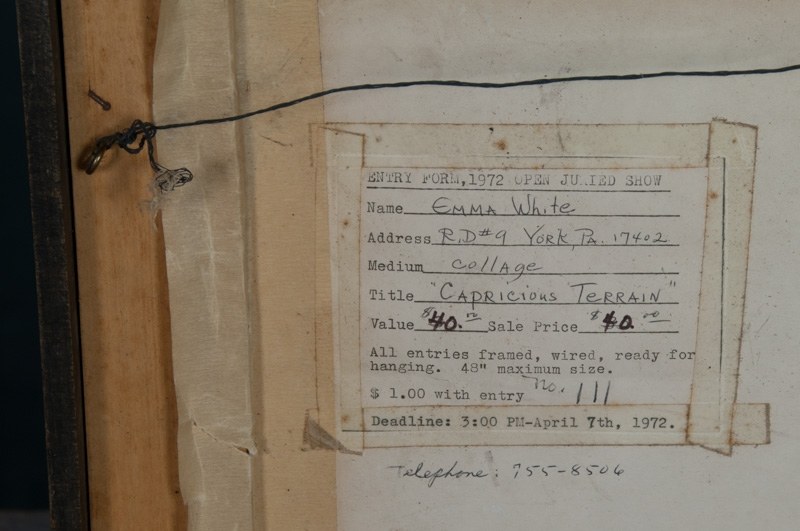 ENTRY FORM, 1972 OPEN JURIED SHOW
Name EMMA White
Address R.D #9 YORK, PA. 17402
Medium collage
Title "CAPRICIOUS TERRAIN"
Value $40.00 Sale Price $40.00
All entries framed, wired, ready for
hanging. 48" maximum size.
$ 1.00 with entry no. 111
Deadline: 3:00 PM-April 7th, 1972.
Telephone: 755-8506